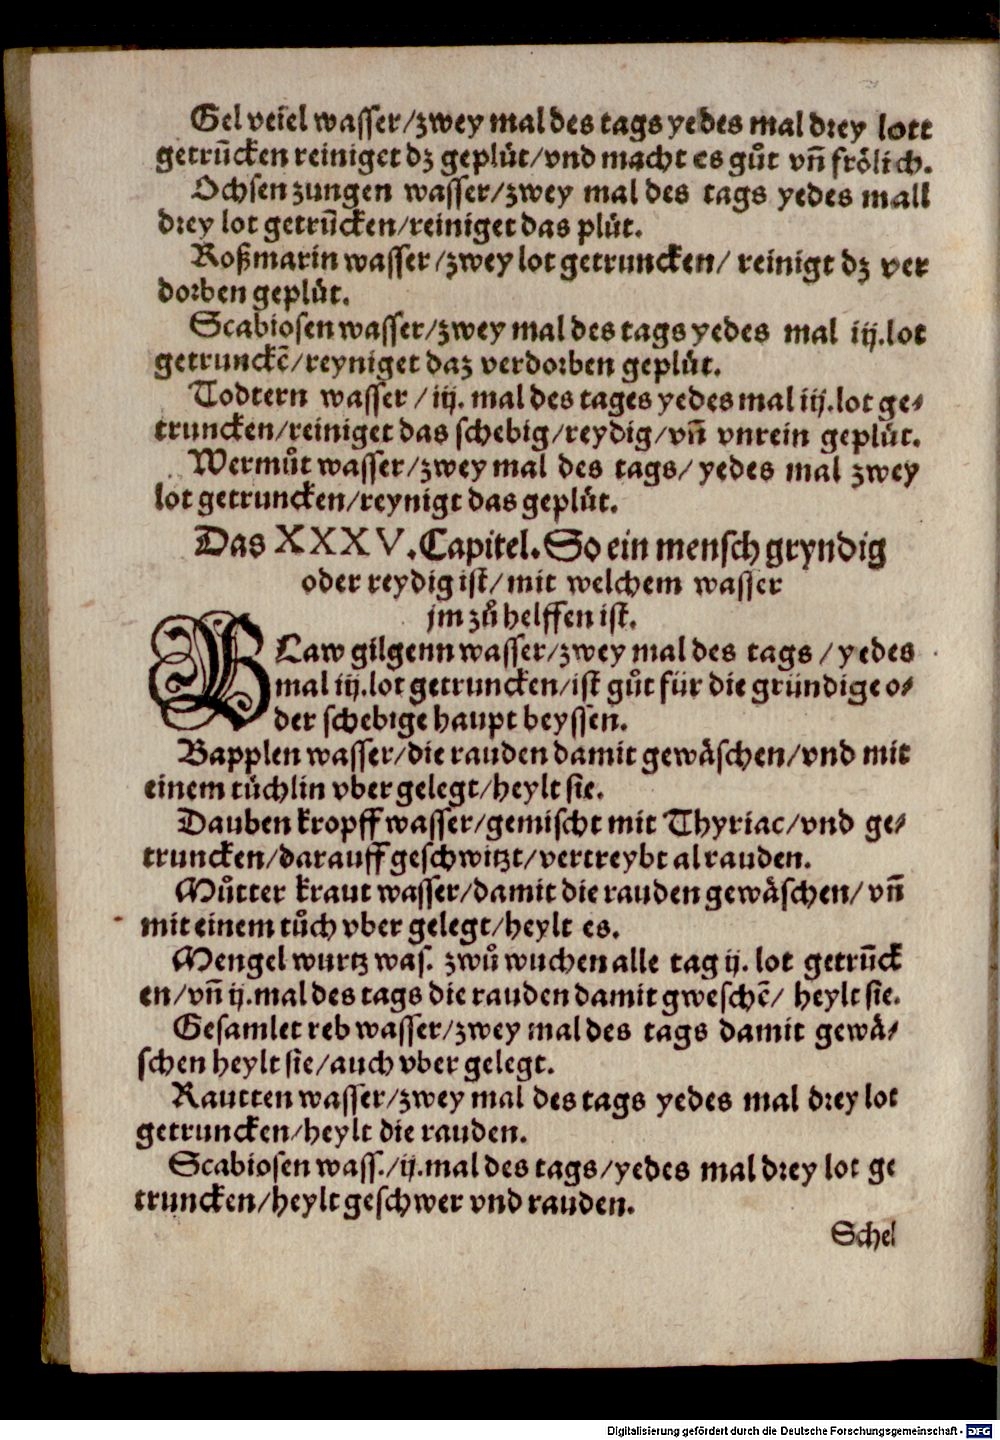 Gel veiel wasser/zwey mal des tags yedes mal drey lott
getrūcken reiniget dz geplüt/vnd macht es gůt vñ frölich.
Ochsen zungen wasser/zwey mal des tags yedes mall
drey lot getrūcken/reiniget das plüt.
Roßmarin wasser/zwey lot getruncken/ reinigt dz ver
dorben geplüt.
Scabiosen wasser/zwey mal des tags yedes mal iij.lot
getrunckē/reyniget daz verdorben geplüt.
Todtern wasser/iij. mal des tages yedes mal iij.lot ge⸗
truncken/reiniget das schebig/reydig/vñ vnrein geplüt.
Wermůt wasser/zwey mal des tags/ yedes mal zwey
lot getruncken/reynigt das geplüt.
Das XXXV.Capitel.So ein mensch gryndig
oder reydig ist/mit welchem wasser
jm zů helffen ist.
BLaw gilgenn wasser/zwey mal des tags/yedes
mal iij.lot getruncken/ist gůt für die gründige o⸗
der schebige haupt beyssen.
Bapplen wasser/die rauden damit gewäschen/vnd mit
einem tüchlin vber gelegt/heylt sie.
Dauben kropff wasser/gemischt mit Thyriac/vnd ge⸗
truncken/darauff geschwitzt/vertreybt al rauden.
Můtter kraut wasser/damit die rauden gewäschen/ vñ
mit einem tůch vber gelegt/heylt es.
Mengel wurtz was. zwů wuchen alle tag ij. lot getrūck
en/vñ ij.mal des tags die rauden damit gweschē/ heylt sie.
Gesamlet reb wasser/zwey mal des tags damit gewä⸗
schen heylt sie/auch vber gelegt.
Rautten wasser/zwey mal des tags yedes mal drey lot
getruncken/heylt die rauden.
Scabiosen wass./ij.mal des tags/yedes mal drey lot ge
truncken/heylt geschwer vnd rauden.
Schel
Digitalisierung gefördert durch die Deutsche Forschungsgemeinschaft - DFG